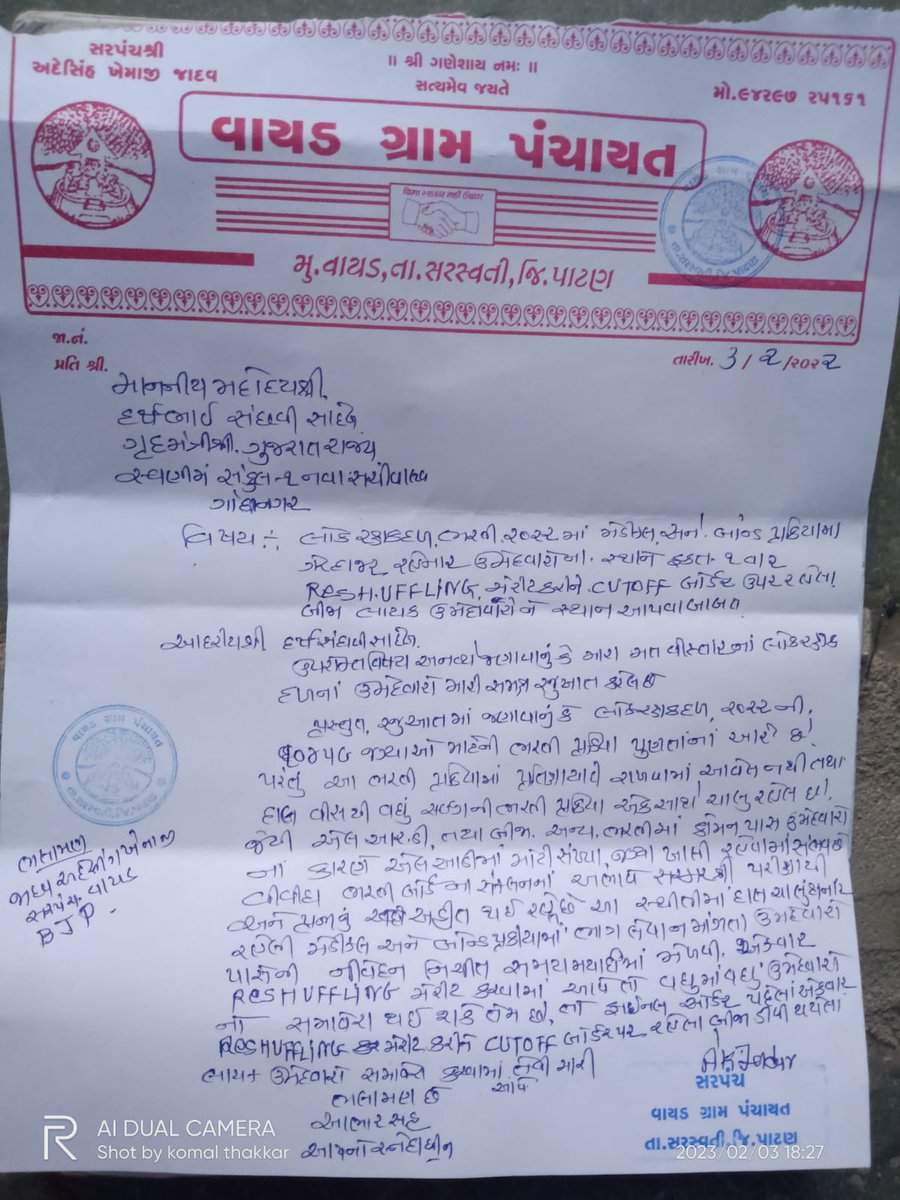 સરપંચશ્રી
અદેસિંહ ખેમાજી જાદવ
॥ શ્રી ગણેશાય નમઃ ॥
સત્યમેવ જયતે
મો.૯૪૨૯૭ ૨૫૧૬૧
વાયડ ગ્રામ પંચાયત
વિના સહકાર નહી ઉધ્ધાર
મુ.વાયડ,તા.સરસ્વતી,જિ.પાટણ
જા.નં.
પ્રતિ શ્રી.
તારીખ. 3/૨/૨૦૨૨
માનનીય મહોદયશ્રી,
હર્ષભાઈ સંઘવી સાહેબ
ગૃહમંત્રીશ્રી. ગુજરાત રાજ્ય
સ્વર્ણીમ સંકુલ-૧ નવા સચીવાલય
ગાંધીનગર
વિષય :- લોકરક્ષકદળ, ભરતી ૨૦૨૨ માં મેડીકલ અને બોન્ડ પ્રક્રિયામાં
ગેરહાજર રહેનાર ઉમેદવારોના સ્થાને ફક્ત ૧ વાર
RESHUFFLING મેરીટ કરીને CUTOFF બોર્ડર ઉપર રહેલા
બીજા લાયક ઉમેદવારોને સ્થાન આપવા બાબત
આદરણીયશ્રી હર્ષ સંઘવી સાહેબ,
ઉપરોક્ત વિષય અન્વયે જણાવાનું કે મારા મત વીસ્તારનાં લોકરક્ષક
દળનાં ઉમેદવારો મારી સમક્ષ રજુઆત કરેલ છે
પ્રસ્તુત, રજુઆતમાં જણાવાનું કે લોકરક્ષકદળ, ૨૦૨૨ ની,
૧૦૪૫૯ જગ્યાઓ માટેની ભરતી પ્રક્રિયા પુર્ણતાનાં આરે છે!
પરંતુ આ ભરતી પ્રક્રિયામાં પ્રતિક્ષાયાદી રાખવામાં આવેલ નથી તથા
હાલ વીસ થી વધુ સરકારની ભરતી પ્રક્રિયા એક સાથે ચાલુ રહેલ છે!
જેથી એલ આર.ડી, તથા બીજી અન્ય ભરતીમાં કોમન પાસ ઉમેદવારો
નાં કારણે એલઆરડીમાં મોટી સંખ્યા જગ્યા ખાલી રહેવામાં સંભવ છે
વીવીધ ભરતી બોર્ડના સંકલનનાં અભાવે
અને થઈ રહ્યું છે આ સ્થીતીમાં હાલ ચાલુ
રહેલી મેડીકલ અને બોન્ડ પ્રક્રીયામાં ભાગ લેવા ન માંગતા ઉમેદવારો
પાસેની નીવેદન નિશ્ચીત સમયમર્યાદામાં મેળવી, એકવાર
RESHUFFLING મેરીટ કરવામાં આવે તો વધુમાં વધુ ઉમેદવારો
નો સમાવેશ થઈ શકે તેમ છે, તો ફાઈનલ ઓર્ડર પહેલાં એકવાર
RESHUFFLING મેરીટ કરીને CUTOFF બોર્ડર પર રહેલા બીજા ડીવી થયેલા
લાયક ઉમેદવારો સમાવેશ કરવામાં આવે તેવી મારી
ભલામણ છે
આભાર સહ
આપનો સ્નેહાધીન
ભલામણ
જાદવ અદેસિંગ ખેમાજી
સરપંચ વાયડ
BJP
A K Jadav
સરપંચ
વાયડ ગ્રામ પંચાયત
તા.સરસ્વતી,જિ.પાટણ
AI DUAL CAMERA
Shot by komal thakkar
2023/02/03 18:27